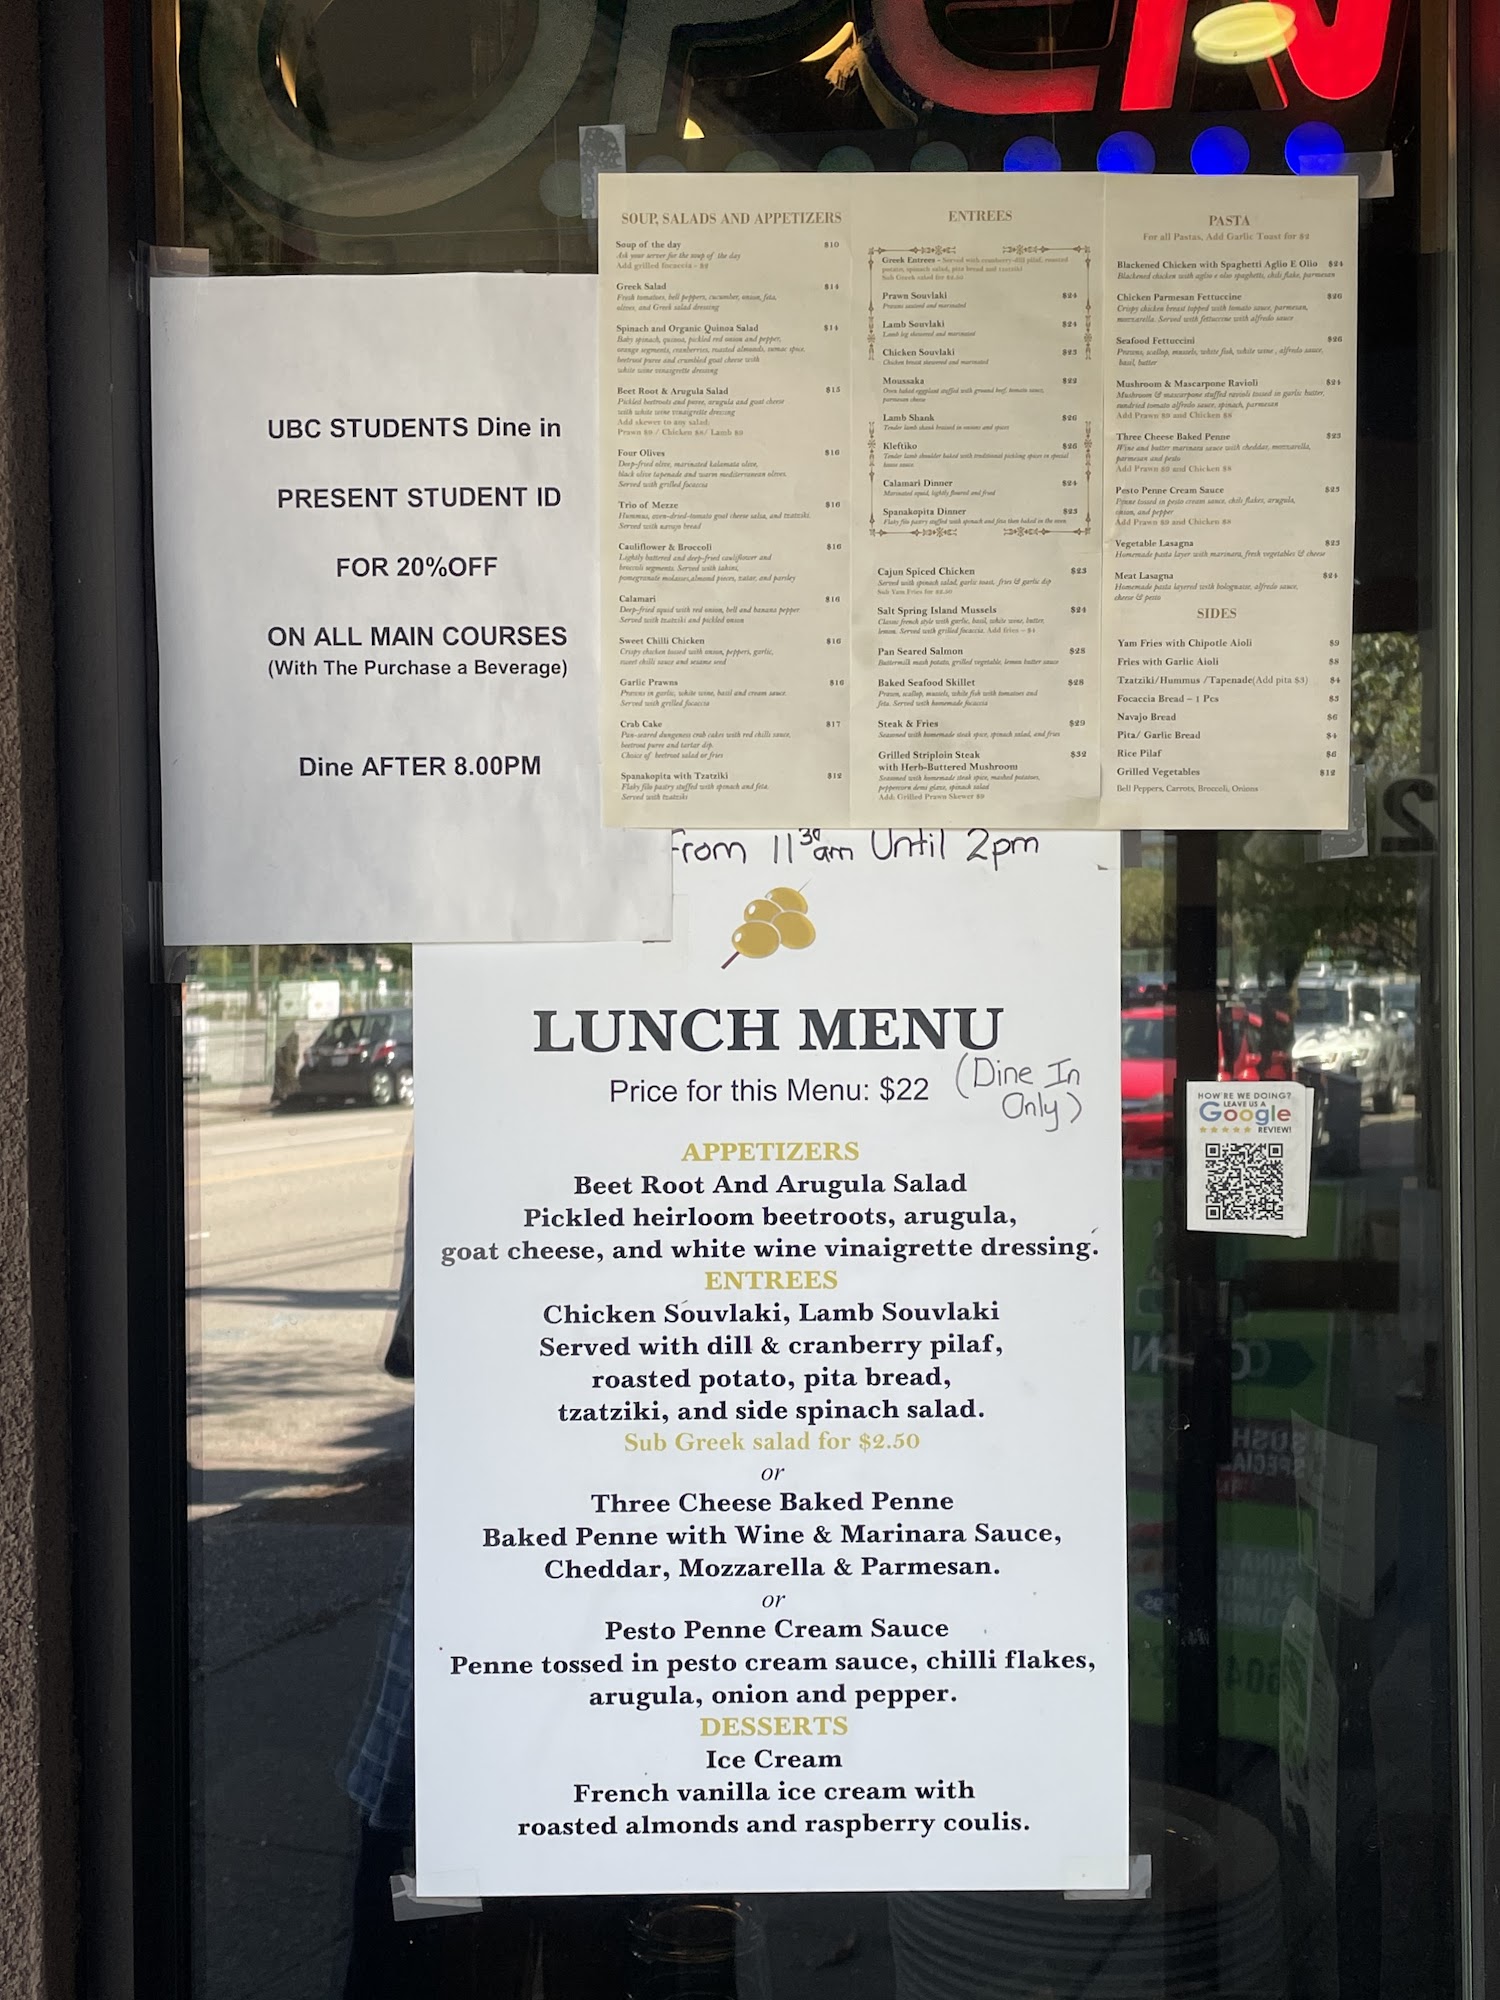 OPEN
UBC STUDENTS Dine in
PRESENT STUDENT ID
FOR 20%OFF
ON ALL MAIN COURSES
(With The Purchase a Beverage)
Dine AFTER 8.00PM
SOUP, SALADS AND APPETIZERS
Soup of the day $10
Ask your server for the soup of the day
Add grilled focaccia - $2
Greek Salad $14
Fresh tomatoes, bell peppers, cucumber, onion, feta,
olives, and Greek salad dressing
Spinach and Organic Quinoa Salad $14
Baby spinach, quinoa, pickled red onion and pepper,
orange segments, cranberries, roasted almonds, sumac spice,
beetroot puree and crumbled goat cheese with
white wine venaigrette dressing
Beet Root & Arugula Salad $15
Pickled beetroots and puree, arugula and goat cheese
with white wine vinaigrette dressing
Add skewer to any salad:
Prawn $9 / Chicken $8/ Lamb $9
Four Olives $16
Deep-fried olive, marinated kalamata olive,
black olive tapenade and warm mediterranean olives.
Served with grilled focaccia
Trio of Mezze $16
Hummus, oven-dried-tomato goat cheese salsa, and tzatziki.
Served with navajo bread
Cauliflower & Broccoli $16
Lightly battered and deep-fried cauliflower and
broccoli segments. Served with tahini,
pomegranate molasses,almond pieces, zatar, and parsley
Calamari $16
Deep-fried squid with red onion, bell and banana pepper
Served with tzatziki and pickled onion
Sweet Chilli Chicken $16
Crispy chicken tossed with onion, peppers, garlic,
sweet chilli sauce and sesame seed
Garlic Prawns $16
Prawns in garlic, white wine, basil and cream sauce.
Served with grilled focaccia
Crab Cake $17
Pan-seared dungeness crab cakes with red chilli sauce,
beetroot puree and tartar dip.
Choice of beetroot salad or fries
Spanakopita with Tzatziki $12
Flaky filo pastry stuffed with spinach and feta.
Served with tzatziki
ENTREES
Greek Entrees - Served with cranberry-dill pilaf, roasted
potato, spinach salad, pita bread and tzatziki
Sub Greek salad for $2.50
Prawn Souvlaki $24
Prawns seasoned and marinated
Lamb Souvlaki $24
Lamb leg skewered and marinated
Chicken Souvlaki $23
Chicken breast skewered and marinated
Moussaka $22
Oven baked eggplant stuffed with ground beef, tomato sauce,
parmesan cheese
Lamb Shank $26
Tender lamb shank braised in onions and spices
Kleftiko $26
Tender lamb shoulder baked with traditional pickling spices in special
house sauce
Calamari Dinner $24
Marinated squid, lightly floured and fried
Spanakopita Dinner $23
Flaky filo pastry stuffed with spinach and feta then baked in the oven
Cajun Spiced Chicken $23
Served with spinach salad, garlic toast, fries & garlic dip
Sub Yam Fries for $2.50
Salt Spring Island Mussels $24
Classic french style with garlic, basil, white wine, butter,
lemon. Served with grilled focaccia. Add fries - $4
Pan Seared Salmon $28
Buttermilk mash potato, grilled vegetable, lemon butter sauce
Baked Seafood Skillet $28
Prawn, scallop, mussels, white fish with tomatoes and
feta. Served with homemade focaccia
Steak & Fries $29
Seasoned with homemade steak spice, spinach salad, and fries
Grilled Striploin Steak $32
with Herb-Buttered Mushroom
Seasoned with homemade steak spice, mashed potatoes,
peppercorn demi glaze, spinach salad
Add: Grilled Prawn Skewer $9
PASTA
For all Pastas, Add Garlic Toast for $2
Blackened Chicken with Spaghetti Aglio E Olio $24
Blackened chicken with aglio e olio spaghetti, chili flake, parmesan
Chicken Parmesan Fettuccine $26
Crispy chicken breast topped with tomato sauce, parmesan,
mozzarella. Served with fettuccine with alfredo sauce
Seafood Fettuccini $26
Prawns, scallop, mussels, white fish, white wine, alfredo sauce,
basil, butter
Mushroom & Mascarpone Ravioli $24
Mushroom & mascarpone stuffed ravioli tossed in garlic butter,
sundried tomato alfredo sauce, spinach, parmesan
Add Prawn $9 and Chicken $8
Three Cheese Baked Penne $23
Wine and butter marinara sauce with cheddar, mozzarella,
parmesan and pesto
Add Prawn $9 and Chicken $8
Pesto Penne Cream Sauce $23
Penne tossed in pesto cream sauce, chili flakes, arugula,
onion, and pepper
Add Prawn $9 and Chicken $8
Vegetable Lasagna $23
Homemade pasta layer with marinara, fresh vegetables & cheese
Meat Lasagna $24
Homemade pasta layered with bolognaise, alfredo sauce,
cheese & pesto
SIDES
Yam Fries with Chipotle Aioli $9
Fries with Garlic Aioli $8
Tzatziki/Hummus /Tapenade(Add pita $3) $4
Focaccia Bread - 1 Pcs $3
Navajo Bread $6
Pita/ Garlic Bread $4
Rice Pilaf $6
Grilled Vegetables $12
Bell Peppers, Carrots, Broccoli, Onions
From 11 30 am Until 2pm
LUNCH MENU
Price for this Menu: $22 (Dine In
Only)
APPETIZERS
Beet Root And Arugula Salad
Pickled heirloom beetroots, arugula,
goat cheese, and white wine vinaigrette dressing.
ENTREES
Chicken Souvlaki, Lamb Souvlaki
Served with dill & cranberry pilaf,
roasted potato, pita bread,
tzatziki, and side spinach salad.
Sub Greek salad for $2.50
or
Three Cheese Baked Penne
Baked Penne with Wine & Marinara Sauce,
Cheddar, Mozzarella & Parmesan.
or
Pesto Penne Cream Sauce
Penne tossed in pesto cream sauce, chilli flakes,
arugula, onion and pepper.
DESSERTS
Ice Cream
French vanilla ice cream with
roasted almonds and raspberry coulis.
HOW'RE WE DOING?
LEAVE US A
Google
REVIEW!